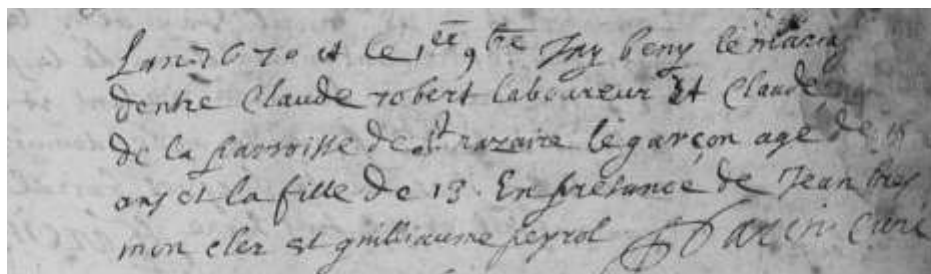 Lan 1670 et le 1er 9bre Jay beny le mariag
dentre Claude robert laboureur et Claude
de la parroisse de st nazaire le garçon age de 18
ans et la fille de 13. En presance de Jean
mon cler et guilliaume peyrol Curé